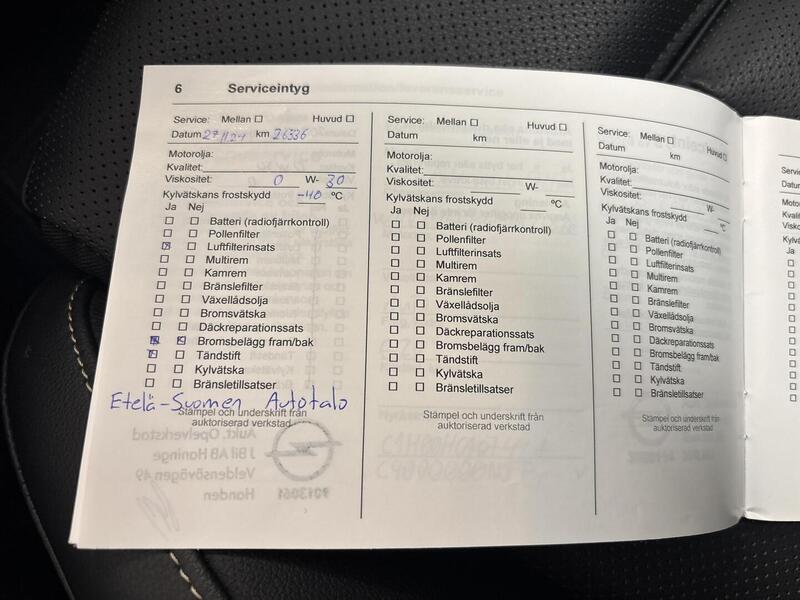 6 Serviceintyg
Service: Mellan ☐ Huvud ☐
Datum 27.11.24 km 26336
Motorolja:
Kvalitet:
Viskositet: 0 W- 30
Kylvätskans frostskydd -40 °C
Ja Nej
☐ ☐ Batteri (radiofjärrkontroll)
☐ ☐ Pollenfilter
☒ ☐ Luftfilterinsats
☐ ☐ Multirem
☐ ☐ Kamrem
☐ ☐ Bränslefilter
☐ ☐ Växellådsolja
☐ ☐ Bromsvätska
☐ ☐ Däckreparationssats
☒ ☒ Bromsbelägg fram/bak
☐ ☐ Tändstift
☐ ☐ Kylvätska
☐ ☐ Bränsletillsatser
Etelä-Suomen Autotalo
Stämpel och underskrift från
auktoriserad verkstad
Aukt. Opelverkstad
J Bil AB Haninge
Veldensövägen 49
Handen
9013061
Service: Mellan ☐ Huvud ☐
Datum km
Motorolja:
Kvalitet:
Viskositet: W-
Kylvätskans frostskydd °C
Ja Nej
☐ ☐ Batteri (radiofjärrkontroll)
☐ ☐ Pollenfilter
☐ ☐ Luftfilterinsats
☐ ☐ Multirem
☐ ☐ Kamrem
☐ ☐ Bränslefilter
☐ ☐ Växellådsolja
☐ ☐ Bromsvätska
☐ ☐ Däckreparationssats
☐ ☐ Bromsbelägg fram/bak
☐ ☐ Tändstift
☐ ☐ Kylvätska
☐ ☐ Bränsletillsatser
Stämpel och underskrift från
auktoriserad verkstad
Service: Mellan ☐ Huvud ☐
Datum km
Motorolja:
Kvalitet:
Viskositet: W-
Kylvätskans frostskydd °C
Ja Nej
☐ ☐ Batteri (radiofjärrkontroll)
☐ ☐ Pollenfilter
☐ ☐ Luftfilterinsats
☐ ☐ Multirem
☐ ☐ Kamrem
☐ ☐ Bränslefilter
☐ ☐ Växellådsolja
☐ ☐ Bromsvätska
☐ ☐ Däckreparationssats
☐ ☐ Bromsbelägg fram/bak
☐ ☐ Tändstift
☐ ☐ Kylvätska
☐ ☐ Bränsletillsatser
Stämpel och underskrift från
auktoriserad verkstad